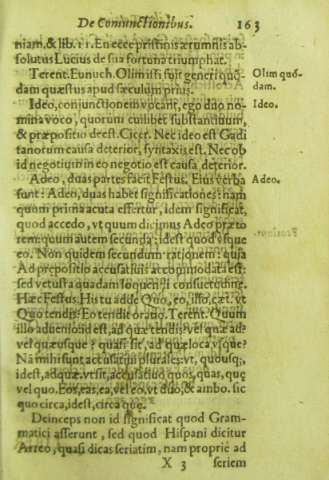 De Coniunctionibus. 163
niam, & lib. 11. En ecce pristinis ærumnis ab-
solutus Lucius de sua fortuna triumphat.
Terent. Eunuch. Olim isti fuit generi quõ-
dam quæstus apud sæculum prius.
Olim quõ-
dam.
Ideo, coniunctionem vocant, ego duo no-
Ideo.
mina voco, quorum cuilibet substantiuum,
& præpositio deest. Cicer. Nec ideo est Gadi
tanorum causa deterior, syntaxis est. Nec ob
id negotium in eo negotio est causa deterior.
Adeo, duas partes facit Festus. Eius verba
Adeo.
sunt: Adeo, duas habet significationes: nam
quom prima acuta effertur, idem significat,
quod accedo, vt quum dicimus Adeo præto
rem: quum autem secunda: idest quod vsque
eo. Non quidem secundum rationem: quia
Ad præpositio accusatiuis accommodata est:
sed vetusta quadam loquendi consuetudine.
Hæc Festus. His tu adde Quo, eo, illo, cæt. vt
Quo tendis? Eo tendit oratio. Terent. Quum
illo aduentio est, ad quæ tendis? vel quæ ad?
vel quæusque? quasi sic, ad quæ loca vsque?
Na mihi sunt accusatiui plurales: vt, quousq;,
idest, adquæ. vt sit, accusatiuo quos, quas, quę
vel quo. Eos, eas, ea, vel eo, vt duo, & ambo. sic
quo circa, idest, circa quę.
Deinceps non id significat quod Gram-
matici asserunt, sed quod Hispani dicitur
Arreo, quasi dicas seriatim, nam proprie ad
X 3 seriem